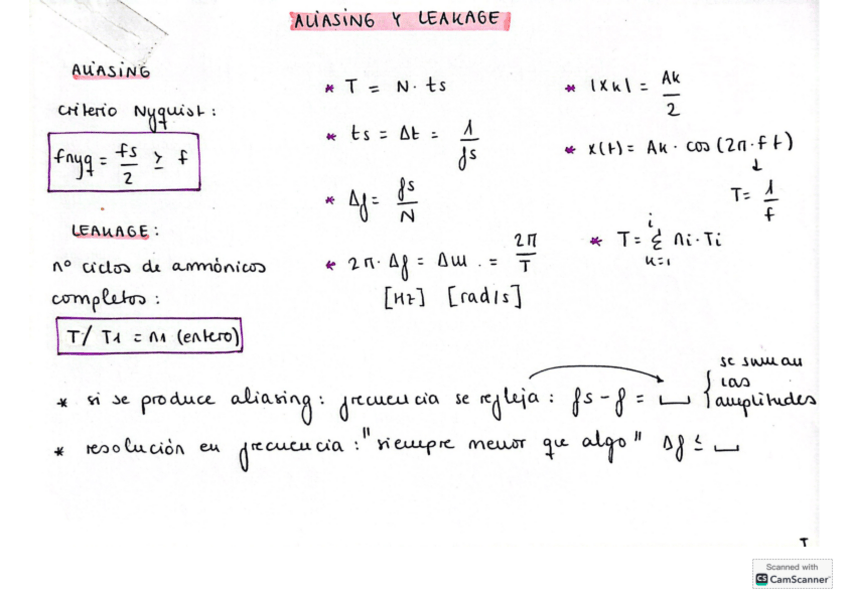 ALIASING Y LEAKAGE
ALIASING
criterio Nyquist:
fnyq = fs/2 ≥ f
LEAKAGE:
nº ciclos de armónicos
completos:
T/T1 = n1 (entero)
* T = N · ts
* ts = Δt = 1/fs
* Δf = fs/N
* 2π · Δf = Δω . = 2π/T
[Hz] [rad/s]
* |Xk| = Ak/2
* x(t) = Ak · cos (2π · f t)
↓
T = 1/f
* T = Σ ni · Ti
i
k=1
* si se produce aliasing: frecuencia se refleja: fs - f = ⌴ { se suman
las
amplitudes
* resolución en frecuencia: "siempre menor que algo" Δf ≤ ⌴
T
Scanned with
CS CamScanner